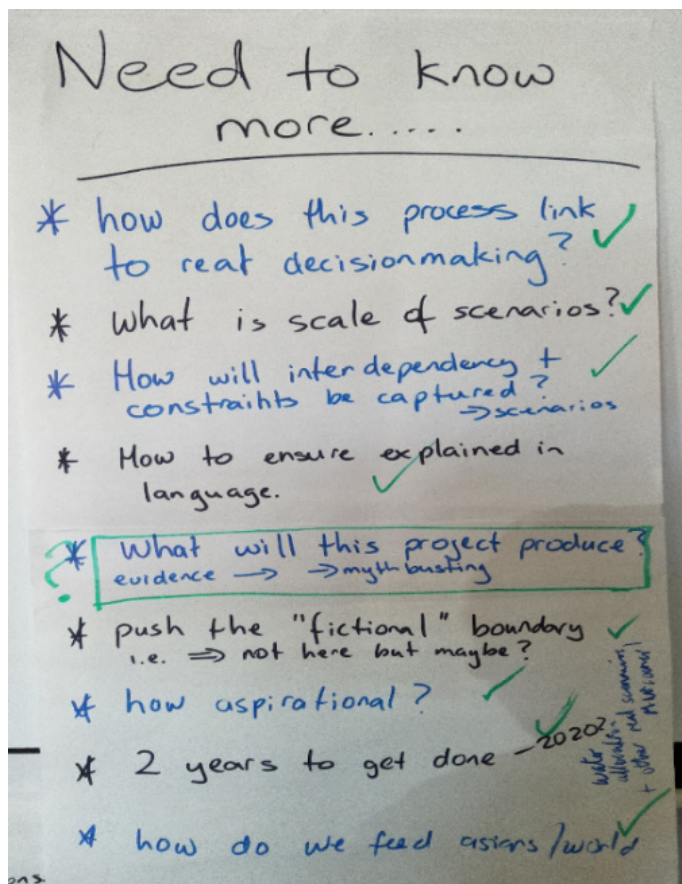 Need to know
more.....
* how does this process link
to real decisionmaking?
* What is scale of scenarios?
* How will interdependency +
constraints be captured?
→ scenarios
* How to ensure explained in
language.
? * What will this project produce?
evidence → → mythbusting
* push the "fictional" boundary
i.e. ⇒ not here but maybe?
* how aspirational?
* 2 years to get done – 2020?
water
+ other real scenarios
* how do we feed asians/world
ons.